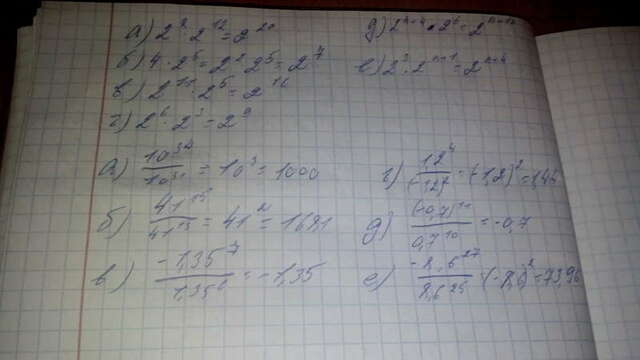 а) 2⁸ · 2¹² = 2²⁰
б) 4 · 2⁵ = 2² 2⁵ = 2⁷
в) 2¹¹ · 2⁵ = 2¹⁶
г) 2⁶ · 2³ = 2⁹
= 2ⁿ⁺¹²
е) 2³ · 2ⁿ⁺¹ = 2ⁿ⁺⁴
а) = 10³ = 1000
б) 41¹⁵/41¹³ = 41² = 1681
в) -1,35⁷/1,35⁶ = -1,35
г) = (-1,2)² = 1,44
д) /0,7¹⁰ = -0,7
е) -8,6²⁷/8,6²⁵ (-8,6)² = 73,96